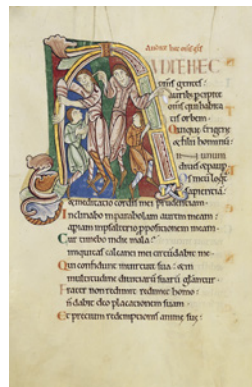 Audite hec
UDITE HEC
oms gentes:
auribus percipite
oms qui habita
tis orbem.
Quique terrigene
& filii hominũ:
unum
diues & paup
Os meũ loqet
sapientiã:
& meditatio cordis mei prudentiam.
Inclinabo in parabolam aurem meam:
aperiam in psalterio ppositionem meam.
Cur timebo in die mala:
iniquitas calcanei mei circũdabit me.
Qui confidunt in uirtute sua: & in
multitudine diuitiarũ suarũ glãntur.
Frater non redimit redimet homo:
ñ dabit deo placationem suam.
Et precium redemptionis anime sue: